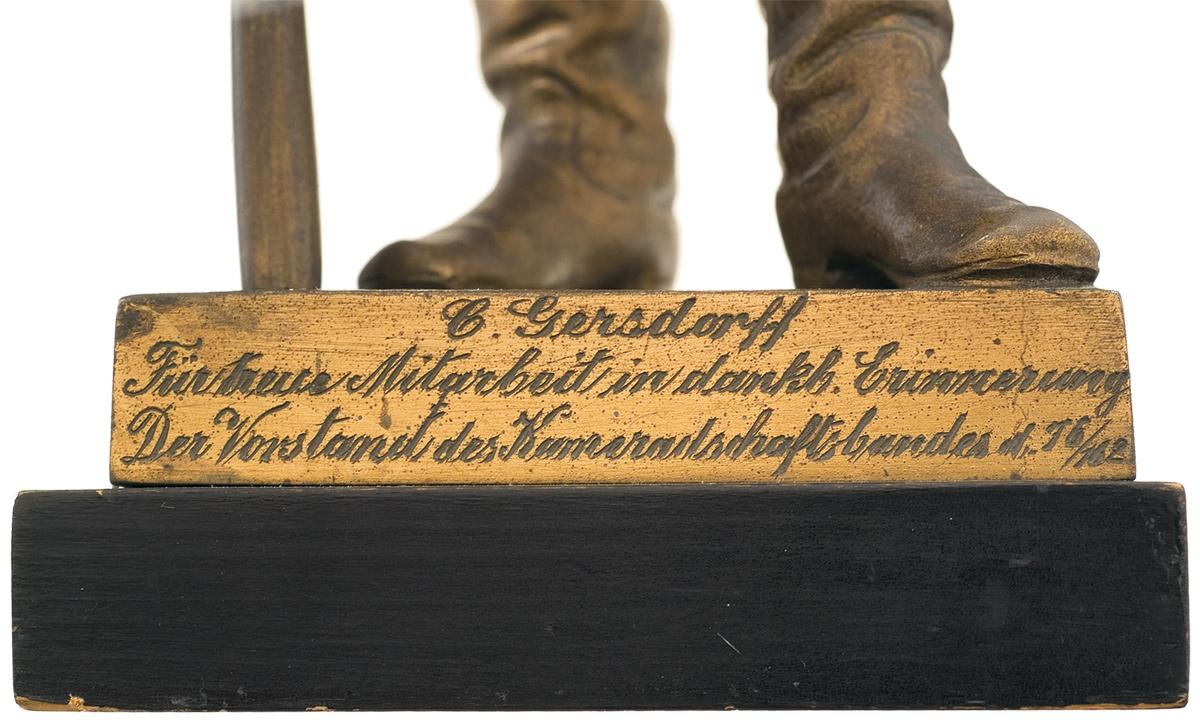 C. Gersdorff
Für treue Mitarbeit in dankb. Erinnerung
Der Vorstand des Kameradschaftsbundes d. 76/162